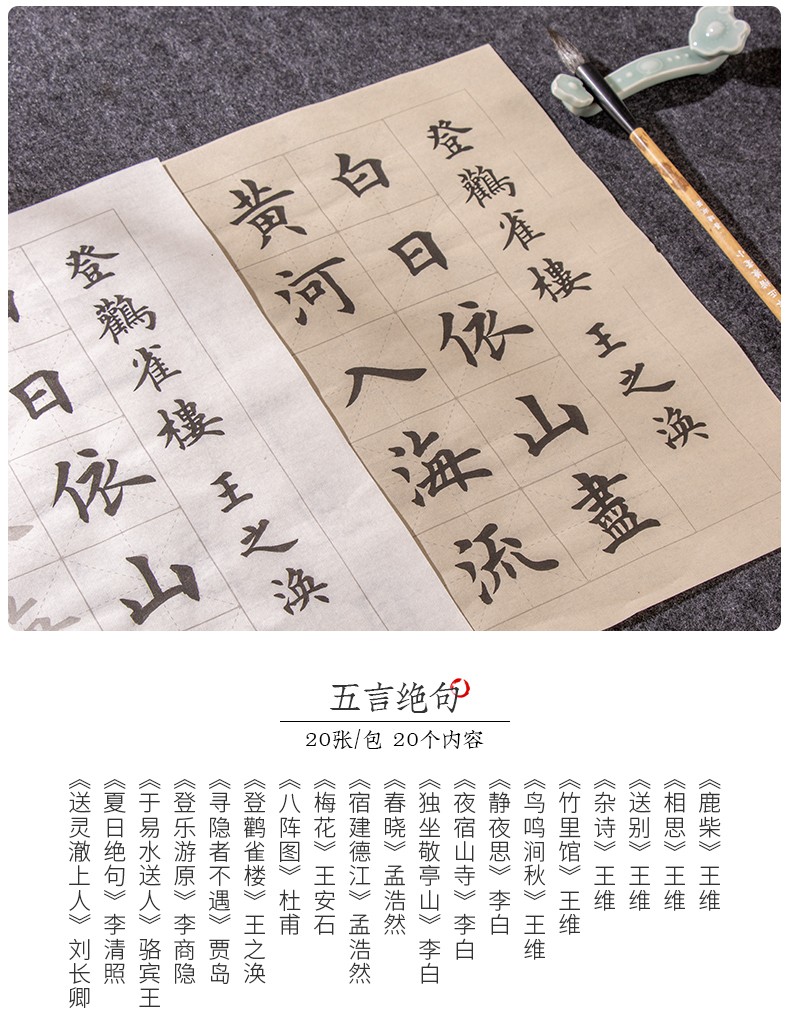 登鸛雀樓 王之渙
白日依山盡
黄河入海流
登鸛雀樓 王之渙
日依山
五言绝句
20张/包 20个内容
《鹿柴》王维
《相思》王维
《送别》王维
《杂诗》王维
《竹里馆》王维
《鸟鸣涧秋》王维
《静夜思》李白
《夜宿山寺》李白
《独坐敬亭山》李白
《春晓》孟浩然
《宿建德江》孟浩然
《梅花》王安石
《八阵图》杜甫
《登鹳雀楼》王之涣
《寻隐者不遇》贾岛
《登乐游原》李商隐
《于易水送人》骆宾王
《夏日绝句》李清照
《送灵澈上人》刘长卿